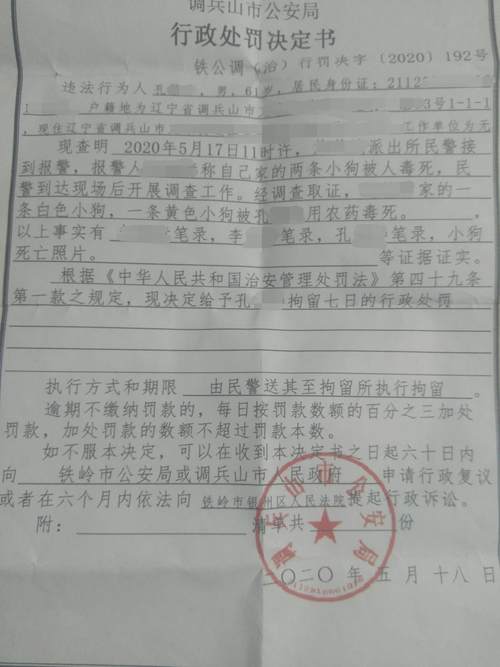 调兵山市公安局
行政处罚决定书
铁公调（治）行罚决字（2020）192号
违法行为人孔 ，男，61岁，居民身份证：2112
1 户籍地为辽宁省调兵山市 3号1-1-1
，现住辽宁省调兵山市 工作单位为无
现查明 2020年5月17日11时许， 派出所民警接
到报警，报警人 称自己家的两条小狗被人毒死，民
警到达现场后开展调查工作。经调查取证， 家的一
条白色小狗，一条黄色小狗被孔 用农药毒死。
以上事实有 笔录，李 笔录，孔 笔录，小狗
死亡照片。 等证据证实。
根据《中华人民共和国治安管理处罚法》第四十九条
第一款之规定，现决定给予孔 拘留七日的行政处罚
执行方式和期限 由民警送其至拘留所执行拘留。
逾期不缴纳罚款的，每日按罚款数额的百分之三加处
罚款，加处罚款的数额不超过罚款本数。
如不服本决定，可以在收到本决定书之日起六十日内
向 铁岭市公安局或调兵山市人民政府 申请行政复议
或者在六个月内依法向 铁岭市银州区人民法院提起行政诉讼。
附： 清单共 份
调兵山市公安局
二〇二〇年五月十八日